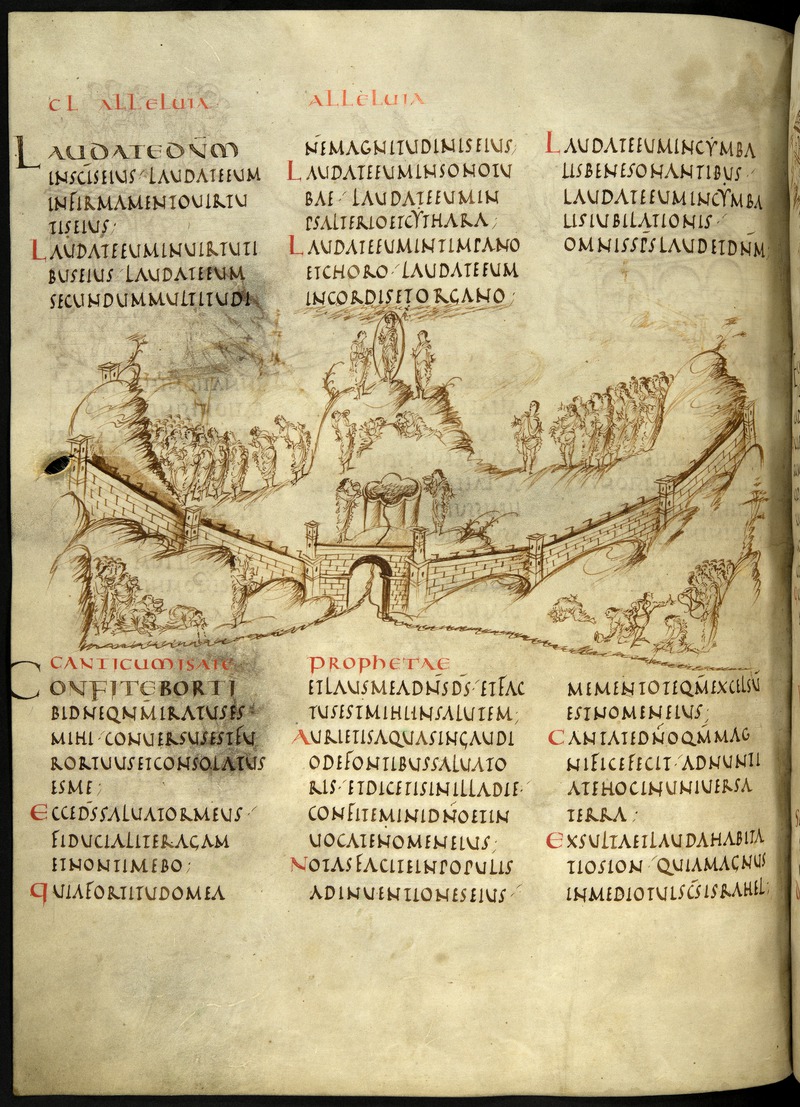 CL ALLELUIA ALLELUIA
LAUDATEDN̄M
INSC̄ISEIUS· LAUDATEEUM
INFIRMAMENTOUIRTU
TISEIUS;
LAUDATEEUMINUIRTUTI
BUSEIUS· LAUDATEEUM
SECUNDUMMULTITUDI
NEMAGNITUDINISEIUS;
LAUDATEEUMINSONOTU
BAE· LAUDATEEUMIN
PSALTERIOETCẎTHARA;
LAUDATEEUMINTIMPANO
ETCHORO· LAUDATEEUM
INCORDISETORGANO;
LAUDATEEUMINCẎMBA
LISBENESONANTIBUS·
LAUDATEEUMINCẎMBA
LISIUBILATIONIS·
OMNISSP̄SLAUDETDN̄M
CANTICUMISAIE PROPHETAE
CONFITEBORTI
BIDNEQN̄MIRATUSES
MIHI· CONUERSUSESTFU
RORTUUSETCONSOLATUS
ESME;
ECCED̄SSALUATORMEUS·
FIDUCIALITERAGAM
ETNONTIMEBO;
QUIAFORTITUDOMEA
ETLAUSMEADN̄SD̄S· ETFAC
TUSESTMIHIINSALUTEM;
AURIETISAQUASINGAUDI
ODEFONTIBUSSALUATO
RIS· ETDICETISINILLADIE·
CONFITEMINIDN̄OETIN
UOCATENOMENEIUS;
NOTASFACITEINPOPULIS
ADINUENTIONESEIUS·
MEMENTOTEQM̄EXCELSŪ
ESTNOMENEIUS;
CANTATEDN̄OQM̄MAG
NIFICEFECIT· ADNUNTI
ATEHOCINUNIUERSA
TERRA;
EXSULTAETLAUDAHABITA
TIOSION· QUIAMAGNUS
INMEDIOTUISC̄SISRAHEL;